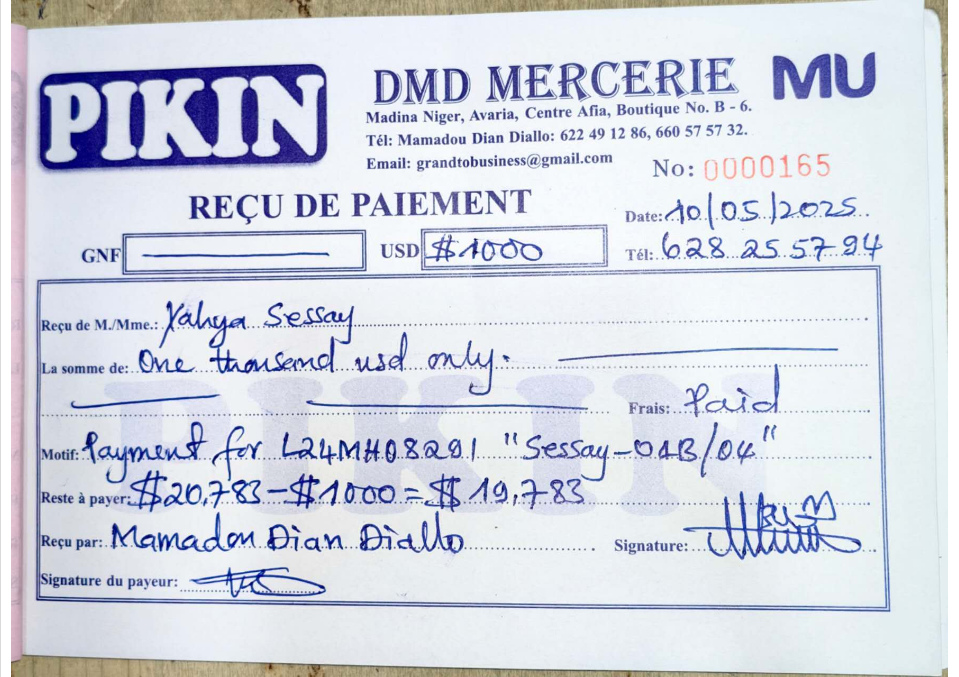 PIKIN
DMD MERCERIE
MU
Madina Niger, Avaria, Centre Afia, Boutique No. B - 6.
Tél: Mamadou Dian Diallo: 622 49 12 86, 660 57 57 32.
Email: grandtobusiness@gmail.com
No: 0000165
REÇU DE PAIEMENT
Date: 10/05/2025
GNF
USD $1000
Tél: 628 25 57 94
Reçu de M./Mme.: Yahya Sessay
La somme de: One thousand usd only.
Frais: Paid
Motif: Payment for L24MH08291 "Sessay-01B/04"
Reste à payer: $20,783-$1000=$19,783
Reçu par: Mamadou Dian Diallo
Signature:
Signature du payeur:
PIKIN